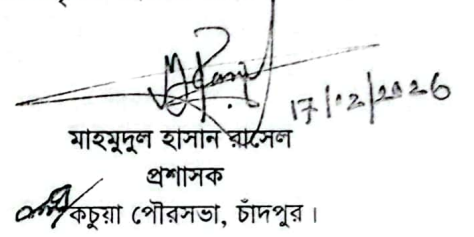 17/02/2026
মাহমুদুল হাসান রাসেল
প্রশাসক
কচুয়া পৌরসভা, চাঁদপুর।